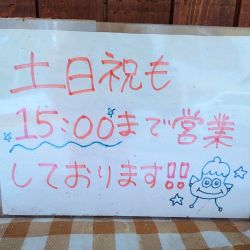 土日祝も
15:00まで営業
しております!!